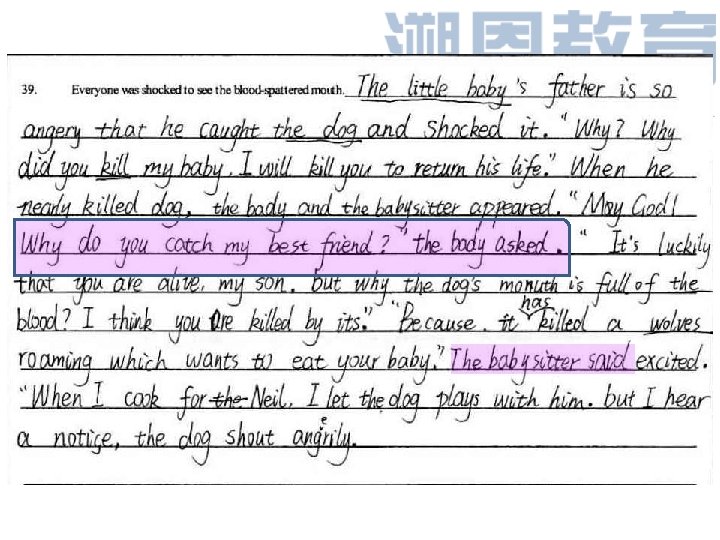 溯恩教育
39. Everyone was shocked to see the blood-spattered mouth. The little baby's father is so
angery that he caught the dog and shocked it. "Why? Why
did you kill my baby. I will kill you to return his life." When he
nearly killed dog, the bady and the babysitter appeared. "May God!
Why do you catch my best friend?" the bady asked. "It's luckily
that you are alive, my son. but why the dog's monuth is full of the
blood? I think you are killed by its." "Because. it has killed a wolves
roaming which wants to eat your baby." The babysitter said excited.
"When I cook for the Neil, I let the dog plays with him. but I hear
a notice, the dog shout angrily.